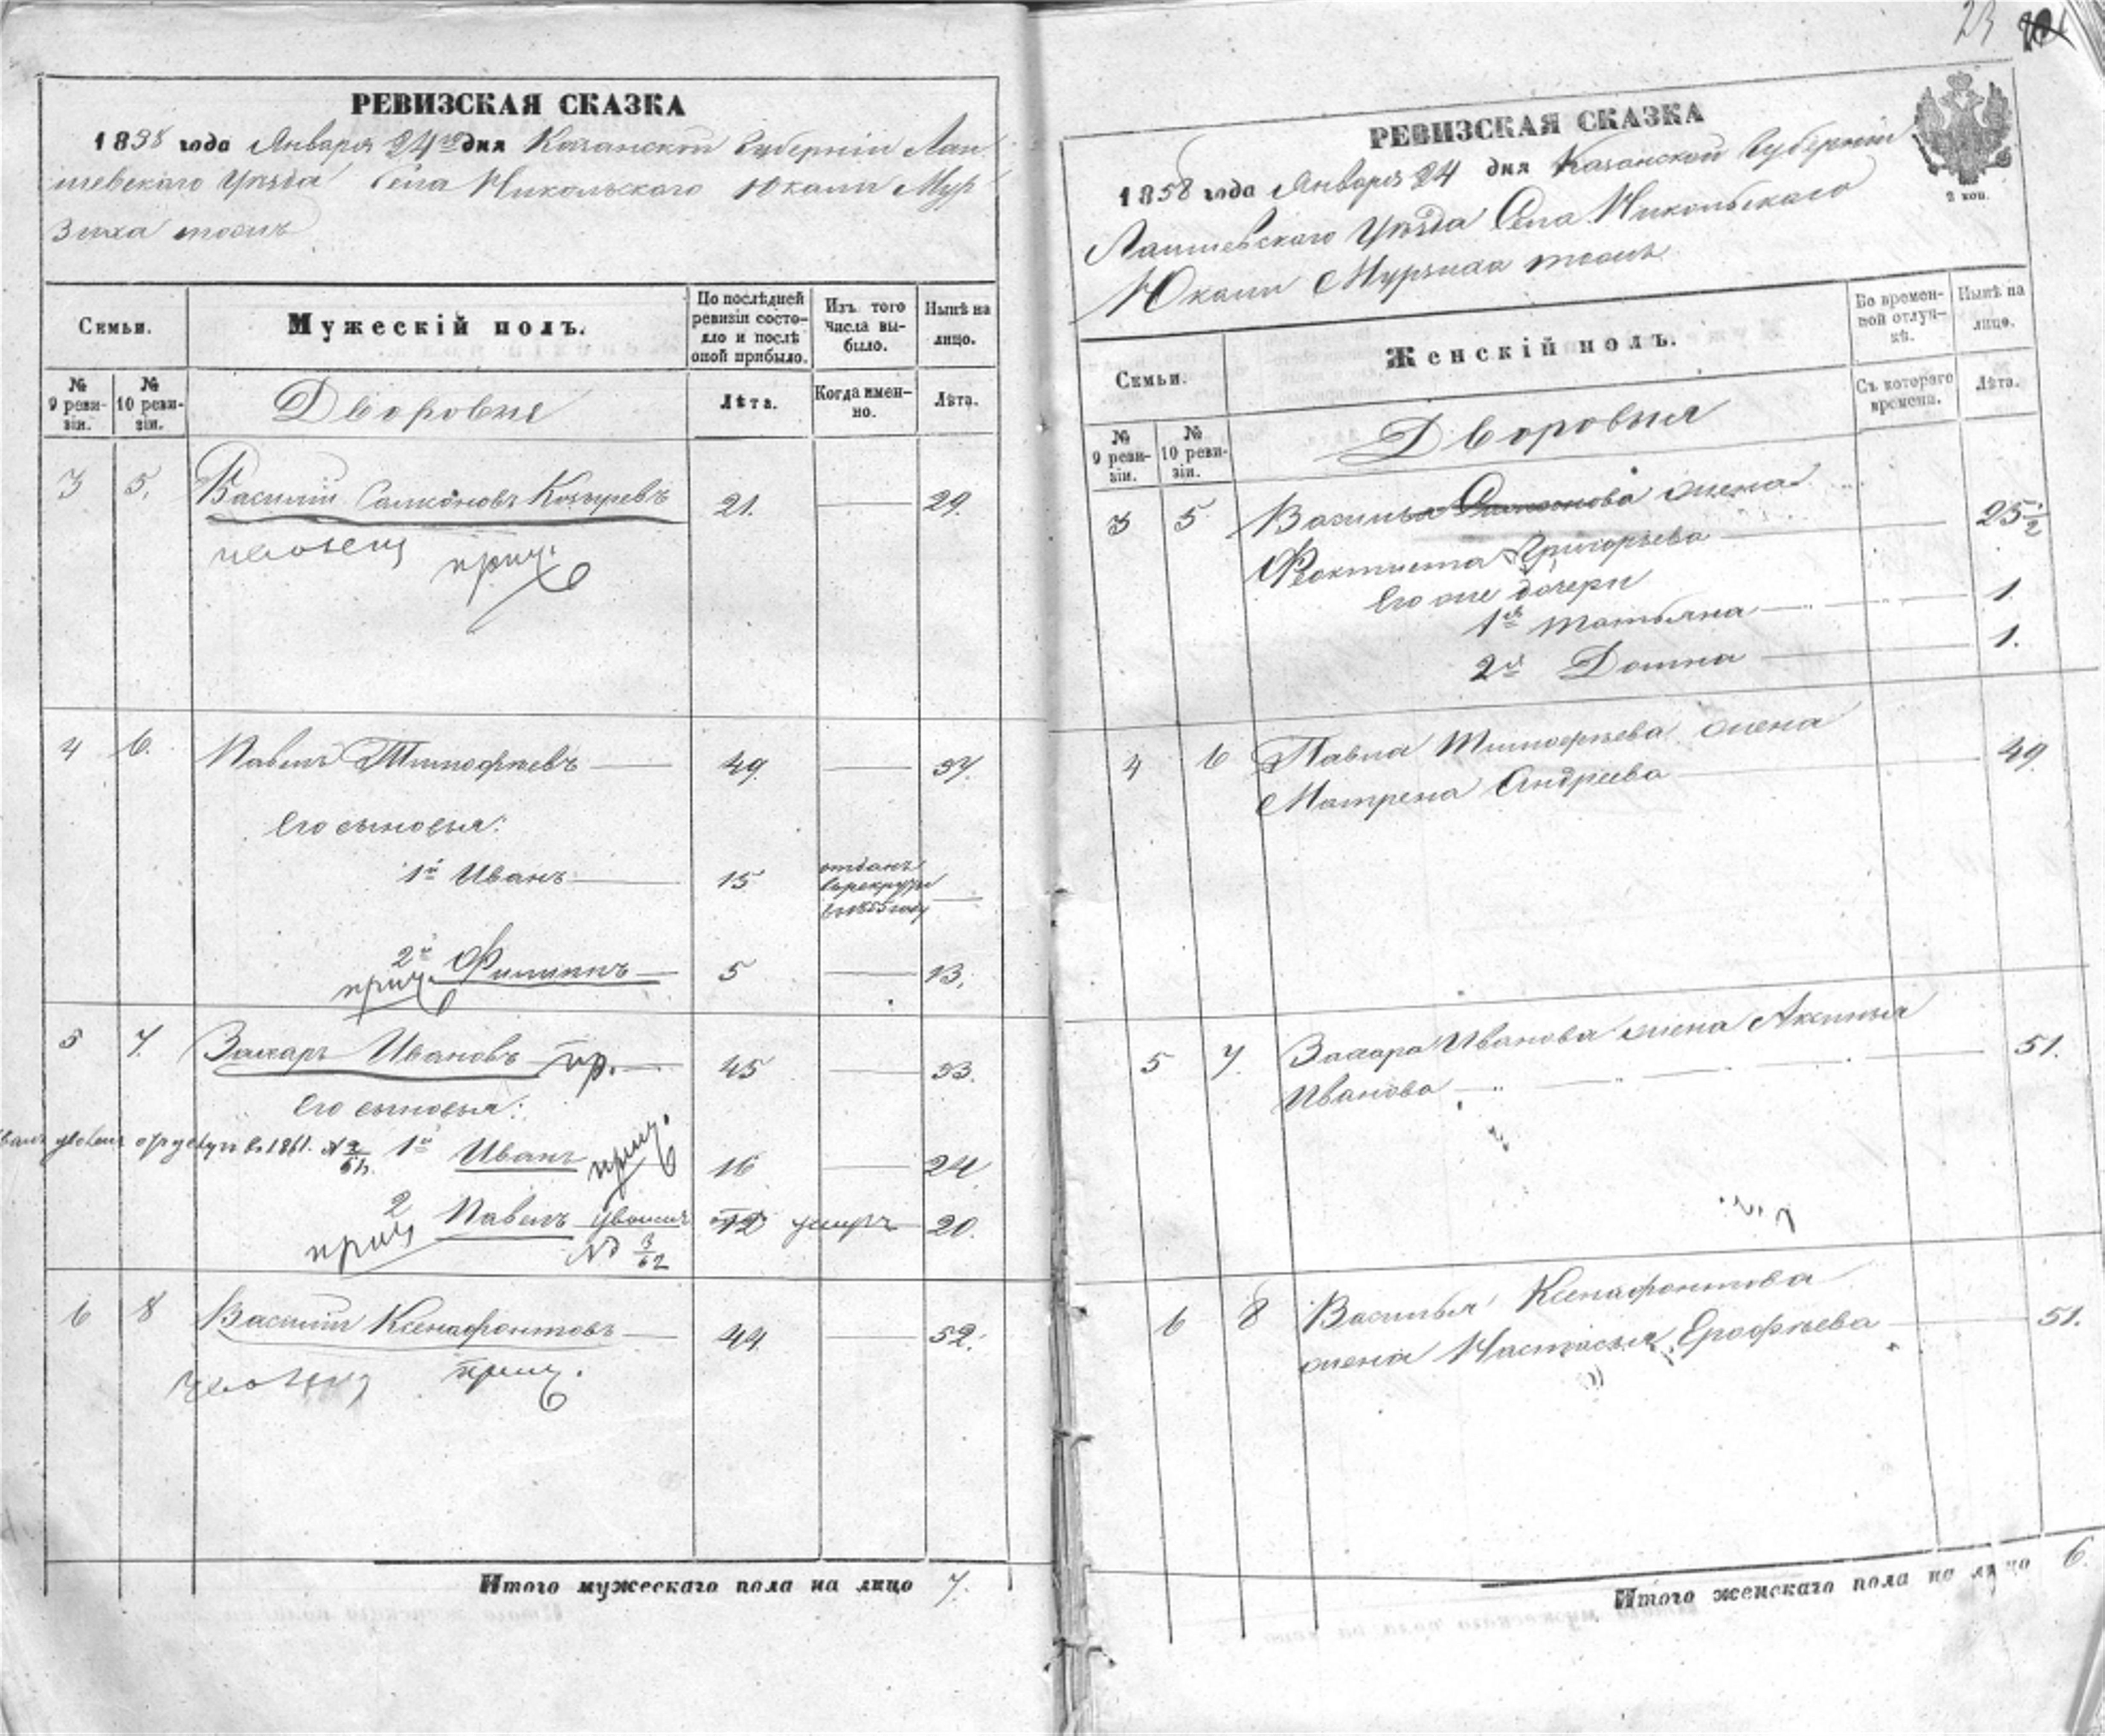 РЕВИЗСКАЯ СКАЗКА
1858 года Января 24го дня Казанской Губернiи Лаи
шевскаго Уѣзда Села Никольскаго Юкачи Мур
зиха тожъ
Семьи.
Мужескiй полъ.
По послѣдней ревизiи состо-
яло и послѣ
оной прибыло.
Изъ того
числа вы-
было.
Нынѣ на
лицо.
№
9 реви-
зiи.
№
10 реви-
зiи.
Дворовыя
Лѣта.
Когда имен-
но.
Лѣта.
3 5. Василiй Самсоновъ Козыревъ 21. 29.
прич.
4 6. Павелъ Тимофѣевъ 49. 57.
Его сыновья:
1й Иванъ 15 отданъ
в рекруты
в 1855 году
2й Филиппъ 5 13.
прич.
5 7. Захаръ Ивановъ пр. 45 53.
Его сыновья:
в 1861. № 1й Иванъ прич. 16 24.
2 Павелъ 12 умеръ 20.
прич № 3/62
6 8 Василiй Ксенафонтовъ 44. 52.
прич.
Итого мужескаго пола на лицо 7.
23
РЕВИЗСКАЯ СКАЗКА
1858 года Января 24 дня Казанской Губернiи
Лаишевскаго Уѣзда Села Никольскаго
Юкачи Мурзиха тожъ
2 коп.
Семьи.
Женскiй полъ.
Во времен-
ной отлуч-
кѣ.
Нынѣ на
лицо.
№
9 реви-
зiи.
№
10 реви-
зiи.
Дворовыя
Съ котораго
времени.
Лѣта.
3 5 Василья Самсонова жена
Феоктиста Григорьева 25 1/2
Его же дочери
1я Татьяна 1
2я Домна 1.
4 6 Павла Тимофѣева жена
Матрена Андреева 49.
5 7. Захара Иванова жена Аксинья
Иванова 51.
6 8 Василья Ксенафонтова
жена Настасья Ерофѣева 51.
Итого женскаго пола на лицо 6.